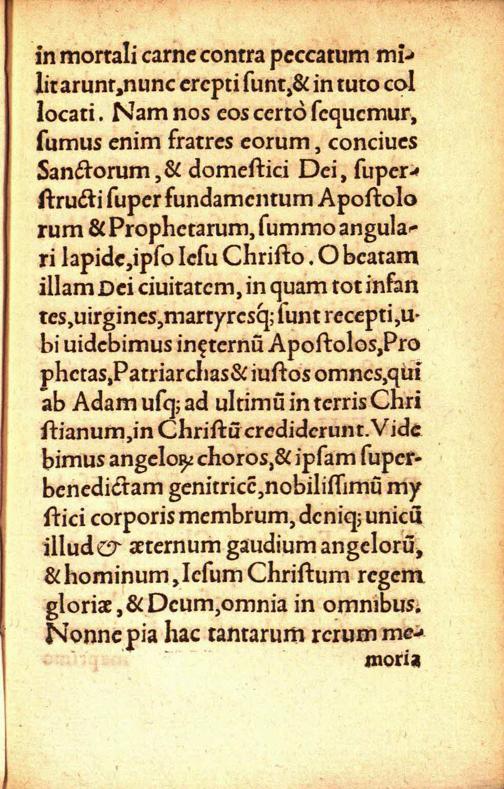 in mortali carne contra peccatum mi-
litarunt, nunc erepti ſunt, & in tuto col
locati. Nam nos eos certò ſequemur,
ſumus enim fratres eorum, conciues
Sanctorum, & domeſtici Dei, ſuper-
ſtructi ſuper fundamentum Apoſtolo
rum & Prophetarum, ſummo angula-
ri lapide, ipſo Ieſu Chriſto. O beatam
illam Dei ciuitatem, in quam tot infan
tes, uirgines, martyresq́; ſunt recepti, u-
bi uidebimus in ęternũ Apoſtolos, Pro
phetas, Patriarchas & iuſtos omnes, qui
ab Adam uſq; ad ultimũ in terris Chri
ſtianum, in Chriſtũ crediderunt. Vide
bimus angeloꝝ choros, & ipſam ſuper-
benedictam genitricẽ, nobiliſſimũ my
ſtici corporis membrum, deniq; unicũ
illud & æternum gaudium angelorũ,
& hominum, Ieſum Chriſtum regem
gloriæ, & Deum, omnia in omnibus.
Nonne pia hac tantarum rerum me-
moria